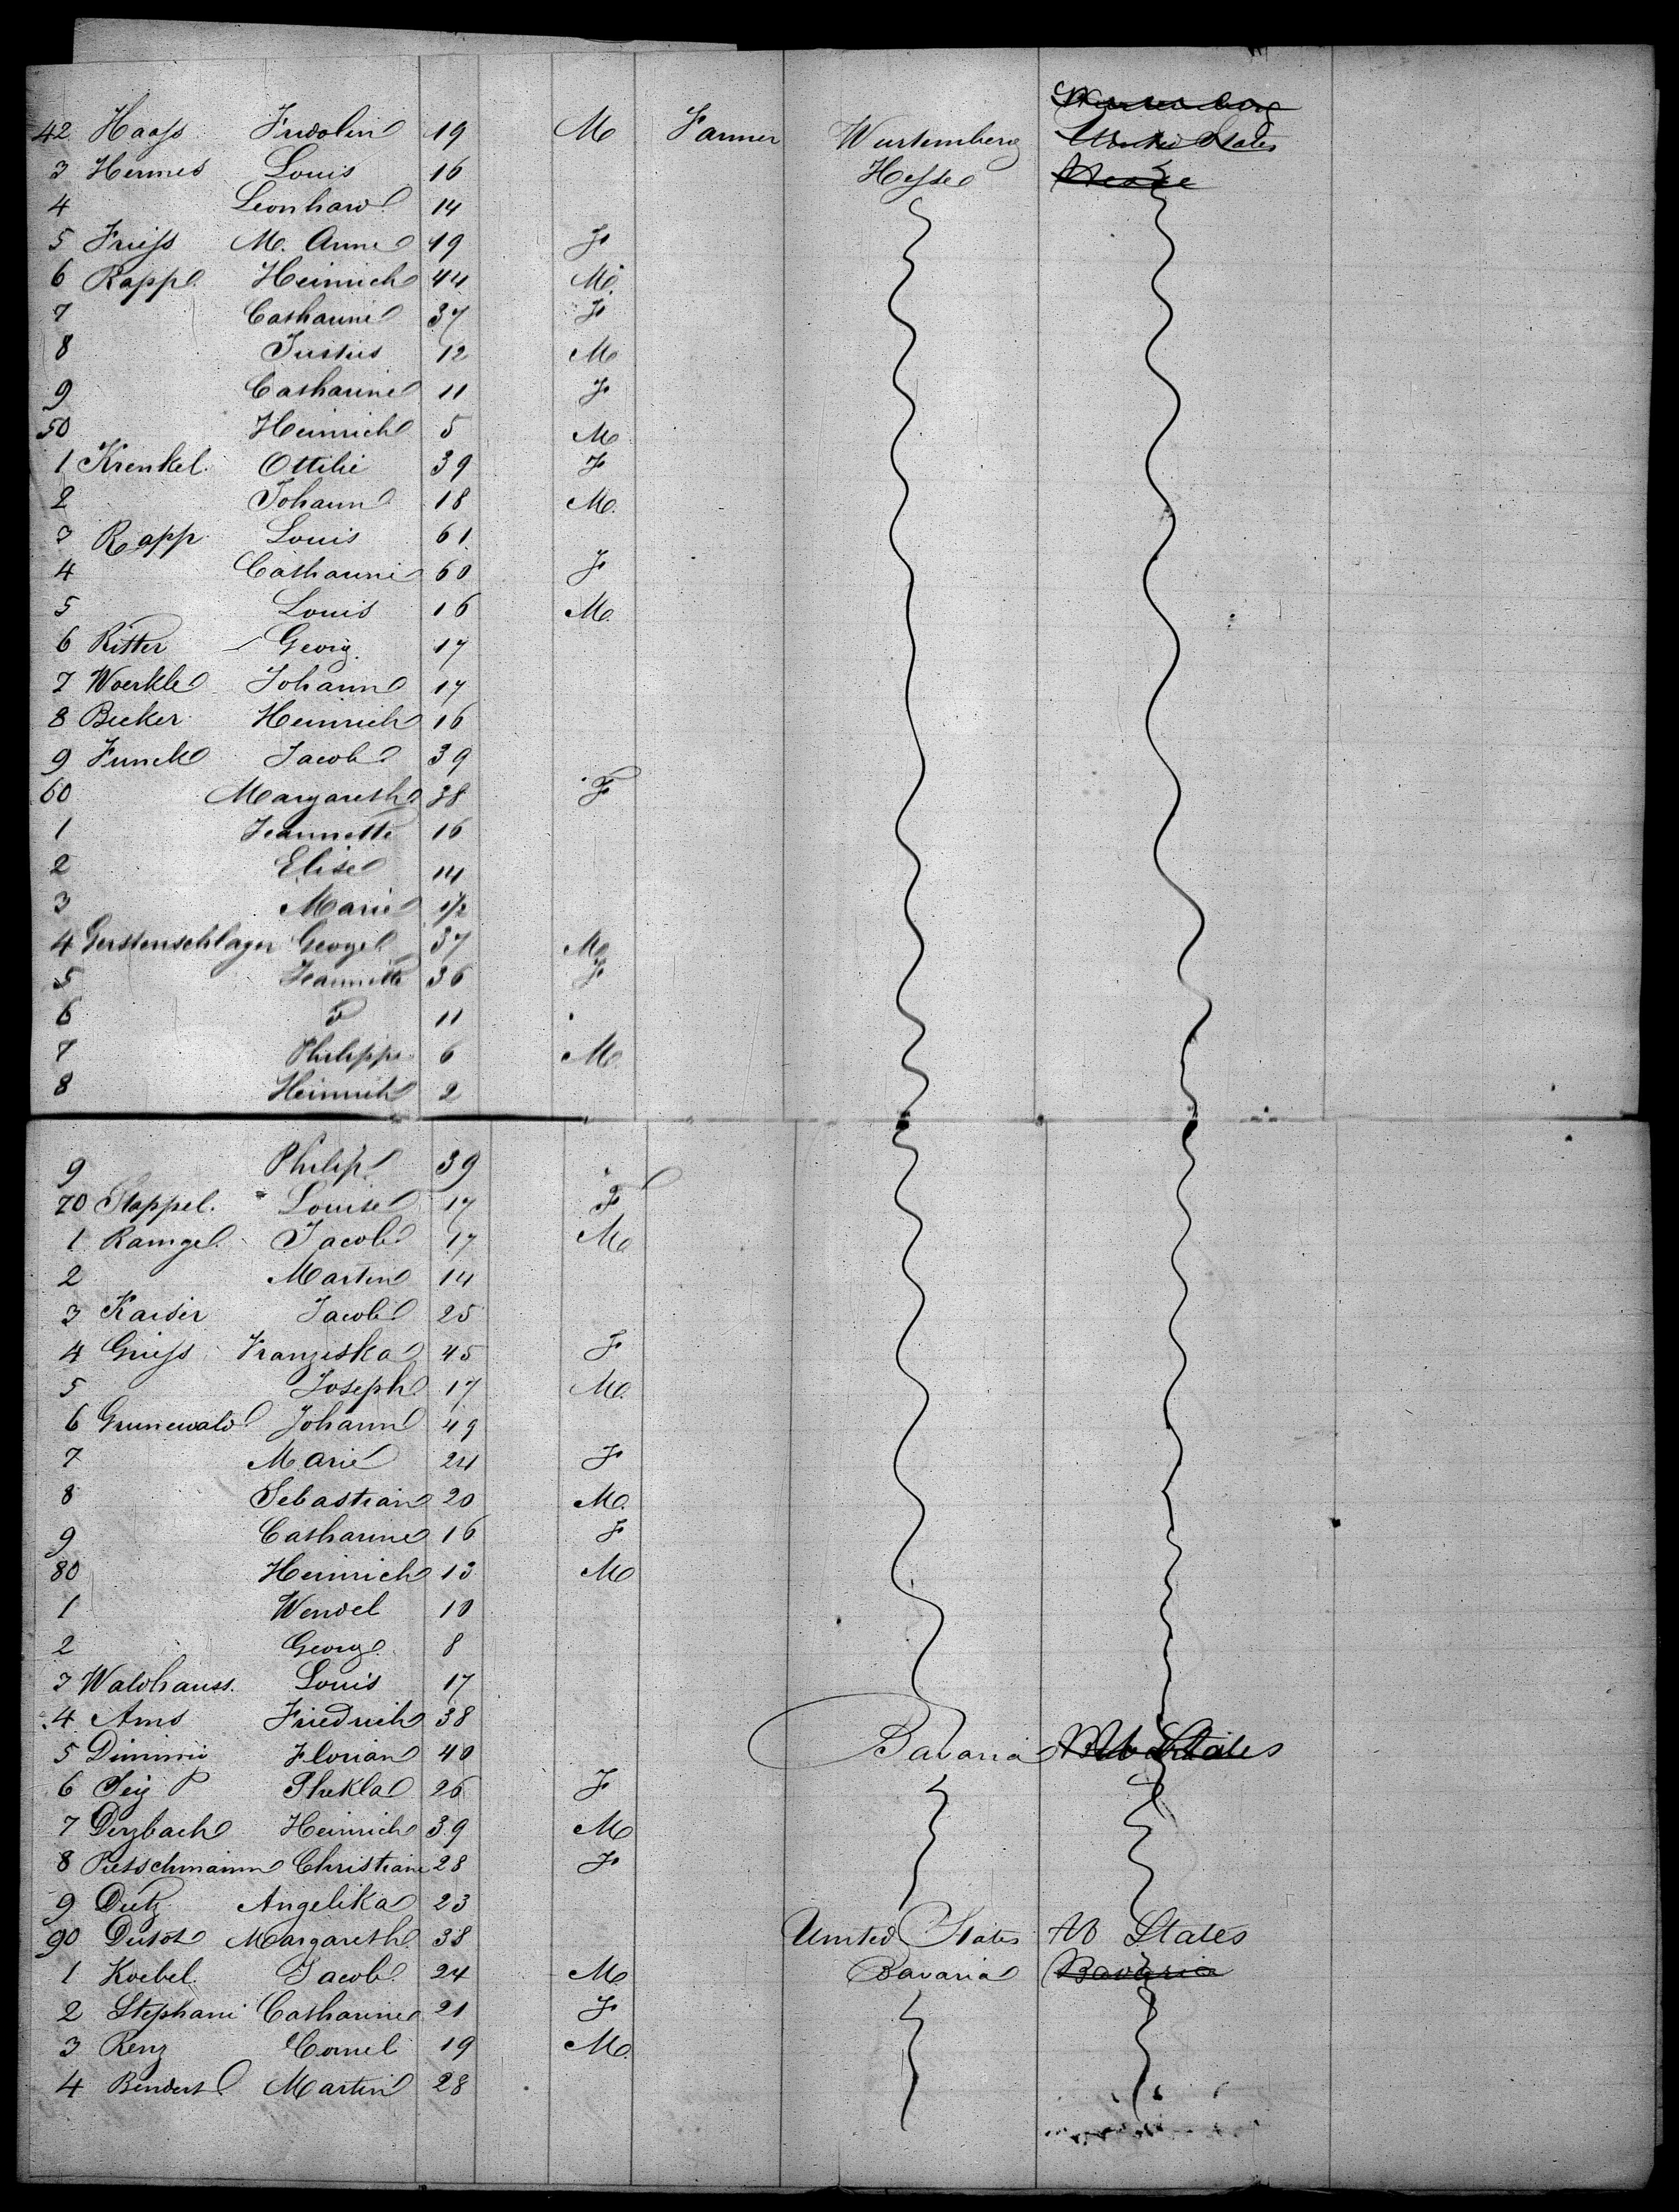 Wurtemberg
42 Haass Fridolin 19 M Farmer Wurtemberg United States
3 Hermes Louis 16 Hesse Hesse
4 Leonhard 14
5 Friess M. Anne 19 F
6 Rapp Heinrich 44 M
7 Catharine 37 F
8 Justus 12 M
9 Catharine 11 F
50 Heinrich 5 M
1 Krenkel Ottilie 39 F
2 Johann 18 M
3 Rapp Louis 61
4 Catharine 60 F
5 Louis 16 M
6 Ritter Georg 17
7 Woerkle Johann 17
8 Becker Heinrich 16
9 Funck Jacob 39
60 Margareth 38 F
1 Jeannette 16
2 Elise 14
3 Marie 1/2
4 Gerstenschlager George 37 M
5 Jeannette 36 F
6 11
7 Philippe 6 M
8 Heinrich 2
9 Philip 39
70 Stappel Louise 17 F
1 Ramgel Jacob 17 M
2 Martin 14
3 Kaiser Jacob 25
4 Griess Franziska 45 F
5 Joseph 17 M
6 Grunewald Johann 49
7 Marie 24 F
8 Sebastian 20 M
9 Catharine 16 F
80 Heinrich 13 M
1 Wendel 10
2 Georg 8
3 Waldhauss Louis 17
4 Ams Friedrich 38
5 Florian 40 Bavaria States
6 Thekla 26 F
7 Derzbach Heinrich 39 M
8 Pietschmann Christiane 28 F
9 Dietz Angelika 23
90 Margareth 38 United States States
1 Koebel Jacob 24 M Bavaria Bavaria
2 Stephani Catharine 21 F
3 Renz Cornel 19 M
4 Bendert Martin 28